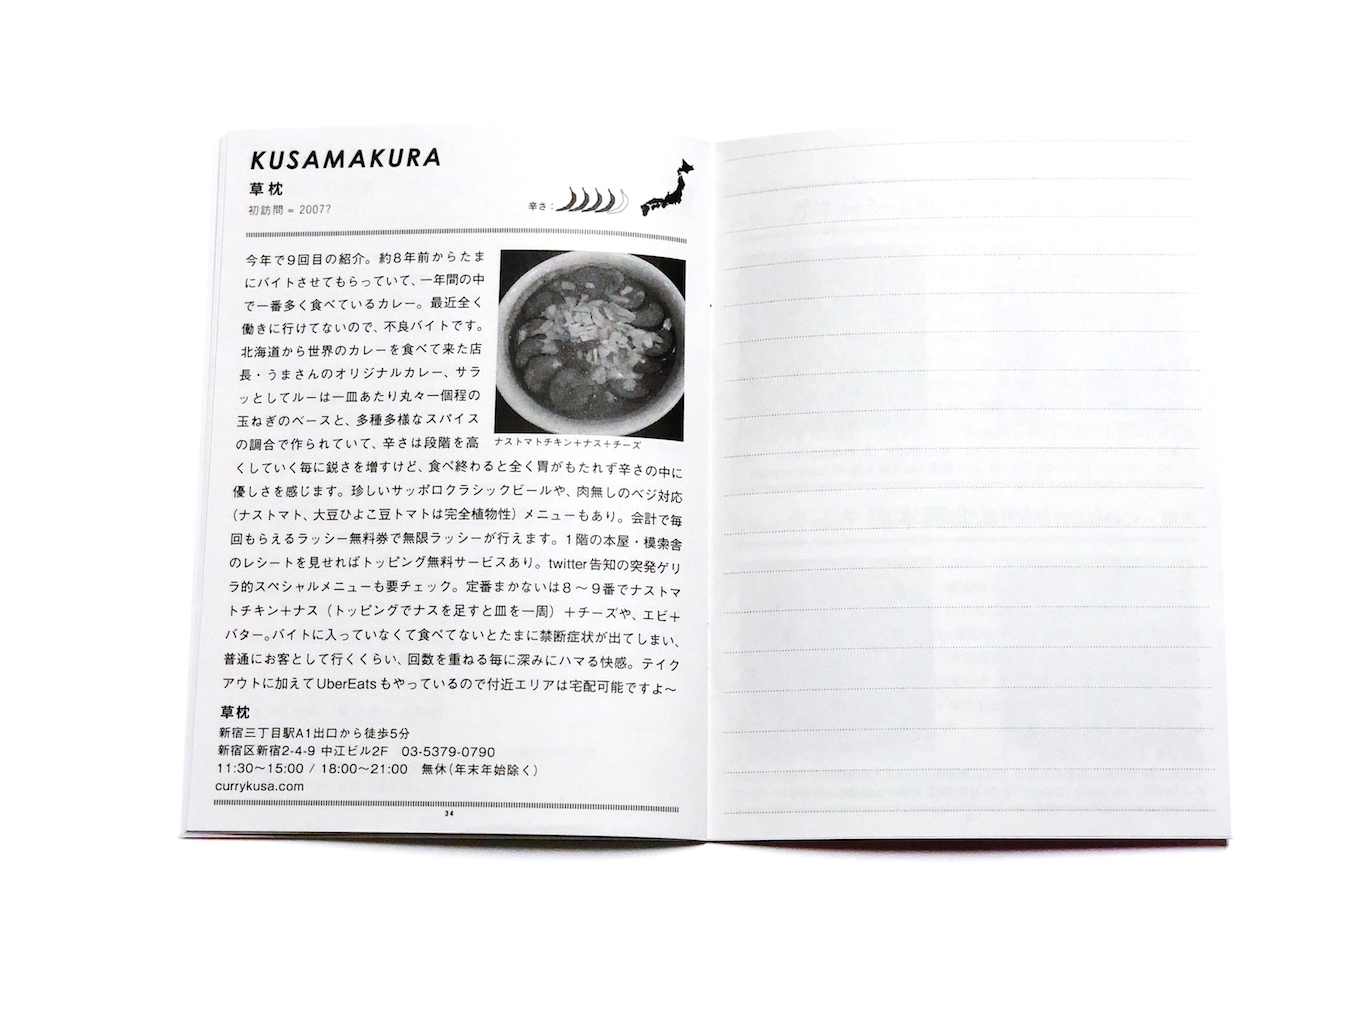 KUSAMAKURA
草枕
初訪問 = 2007?
辛さ：
今年で9回目の紹介。約8年前からたま
にバイトさせてもらっていて、一年間の中
で一番多く食べているカレー。最近全く
働きに行けてないので、不良バイトです。
北海道から世界のカレーを食べて来た店
長・うまさんのオリジナルカレー、サラ
ッとしてルーは一皿あたり丸々一個程の
玉ねぎのベースと、多種多様なスパイス
の調合で作られていて、辛さは段階を高
くしていく毎に鋭さを増すけど、食べ終わると全く胃がもたれず辛さの中に
優しさを感じます。珍しいサッポロクラシックビールや、肉無しのベジ対応
（ナストマト、大豆ひよこ豆トマトは完全植物性）メニューもあり。会計で毎
回もらえるラッシー無料券で無限ラッシーが行えます。1階の本屋・模索舎
のレシートを見せればトッピング無料サービスあり。twitter告知の突発ゲリ
ラ的スペシャルメニューも要チェック。定番まかないは8〜9番でナストマ
トチキン＋ナス（トッピングでナスを足すと皿を一周）＋チーズや、エビ＋
バター。バイトに入っていなくて食べてないとたまに禁断症状が出てしまい、
普通にお客として行くくらい、回数を重ねる毎に深みにハマる快感。テイク
アウトに加えてUberEatsもやっているので付近エリアは宅配可能ですよ〜
ナストマトチキン＋ナス＋チーズ
草枕
新宿三丁目駅A1出口から徒歩5分
新宿区新宿2-4-9 中江ビル2F　03-5379-0790
11:30〜15:00 / 18:00〜21:00　無休（年末年始除く）
currykusa.com
34